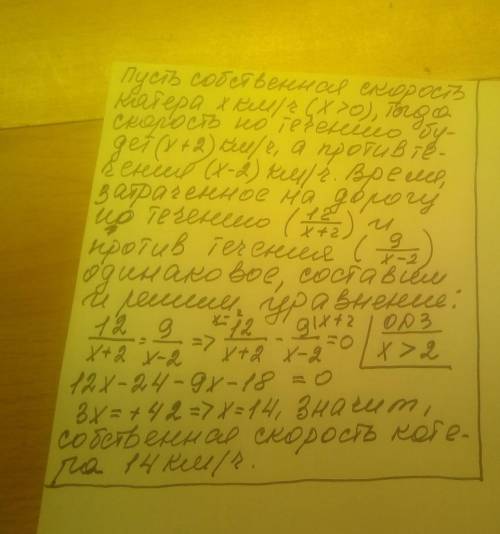 Пусть собственная скорость
катера x км/ч (x>0), тогда
скорость по течению бу-
дет (x+2) км/ч, а против те-
чения (x-2) км/ч. Время,
затраченное на дорогу
по течению (12/(x+2)) и
против течения (9/(x-2))
одинаковое, составим
и решим уравнение:
12/(x+2) = 9/(x-2) => 12/(x+2) - 9/(x-2) |x+2 = 0 ОДЗ x>2
12x-24-9x-18 = 0
3x=+42=>x=14, значит,
собственная скорость кате-
ра 14 км/ч.